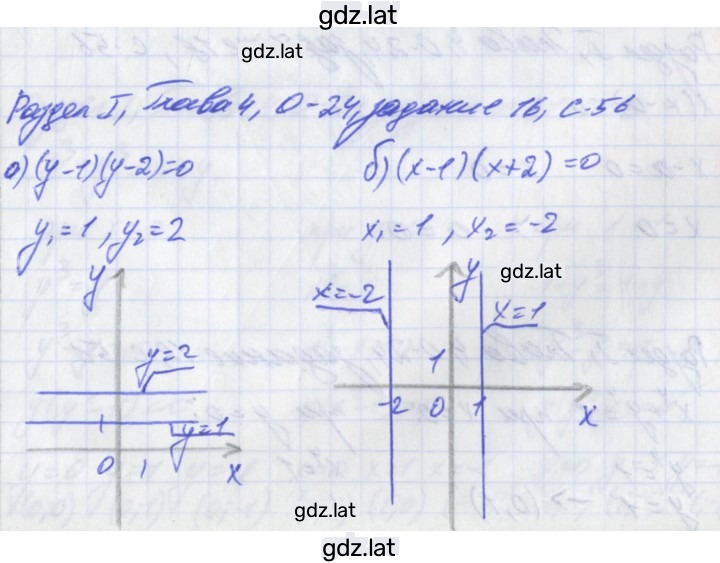 gdz.lat
gdz.lat
Раздел I, Глава 4, О-24, задание 16, с.56
а) (y-1)(y-2)=0
б) (x-1)(x+2)=0
y₁=1, y₂=2
x₁=1, x₂=-2
y
y=2
1
y=1
0 1 x
x=-2
y
gdz.lat
x=1
1
-2 0 1 x
gdz.lat
gdz.lat